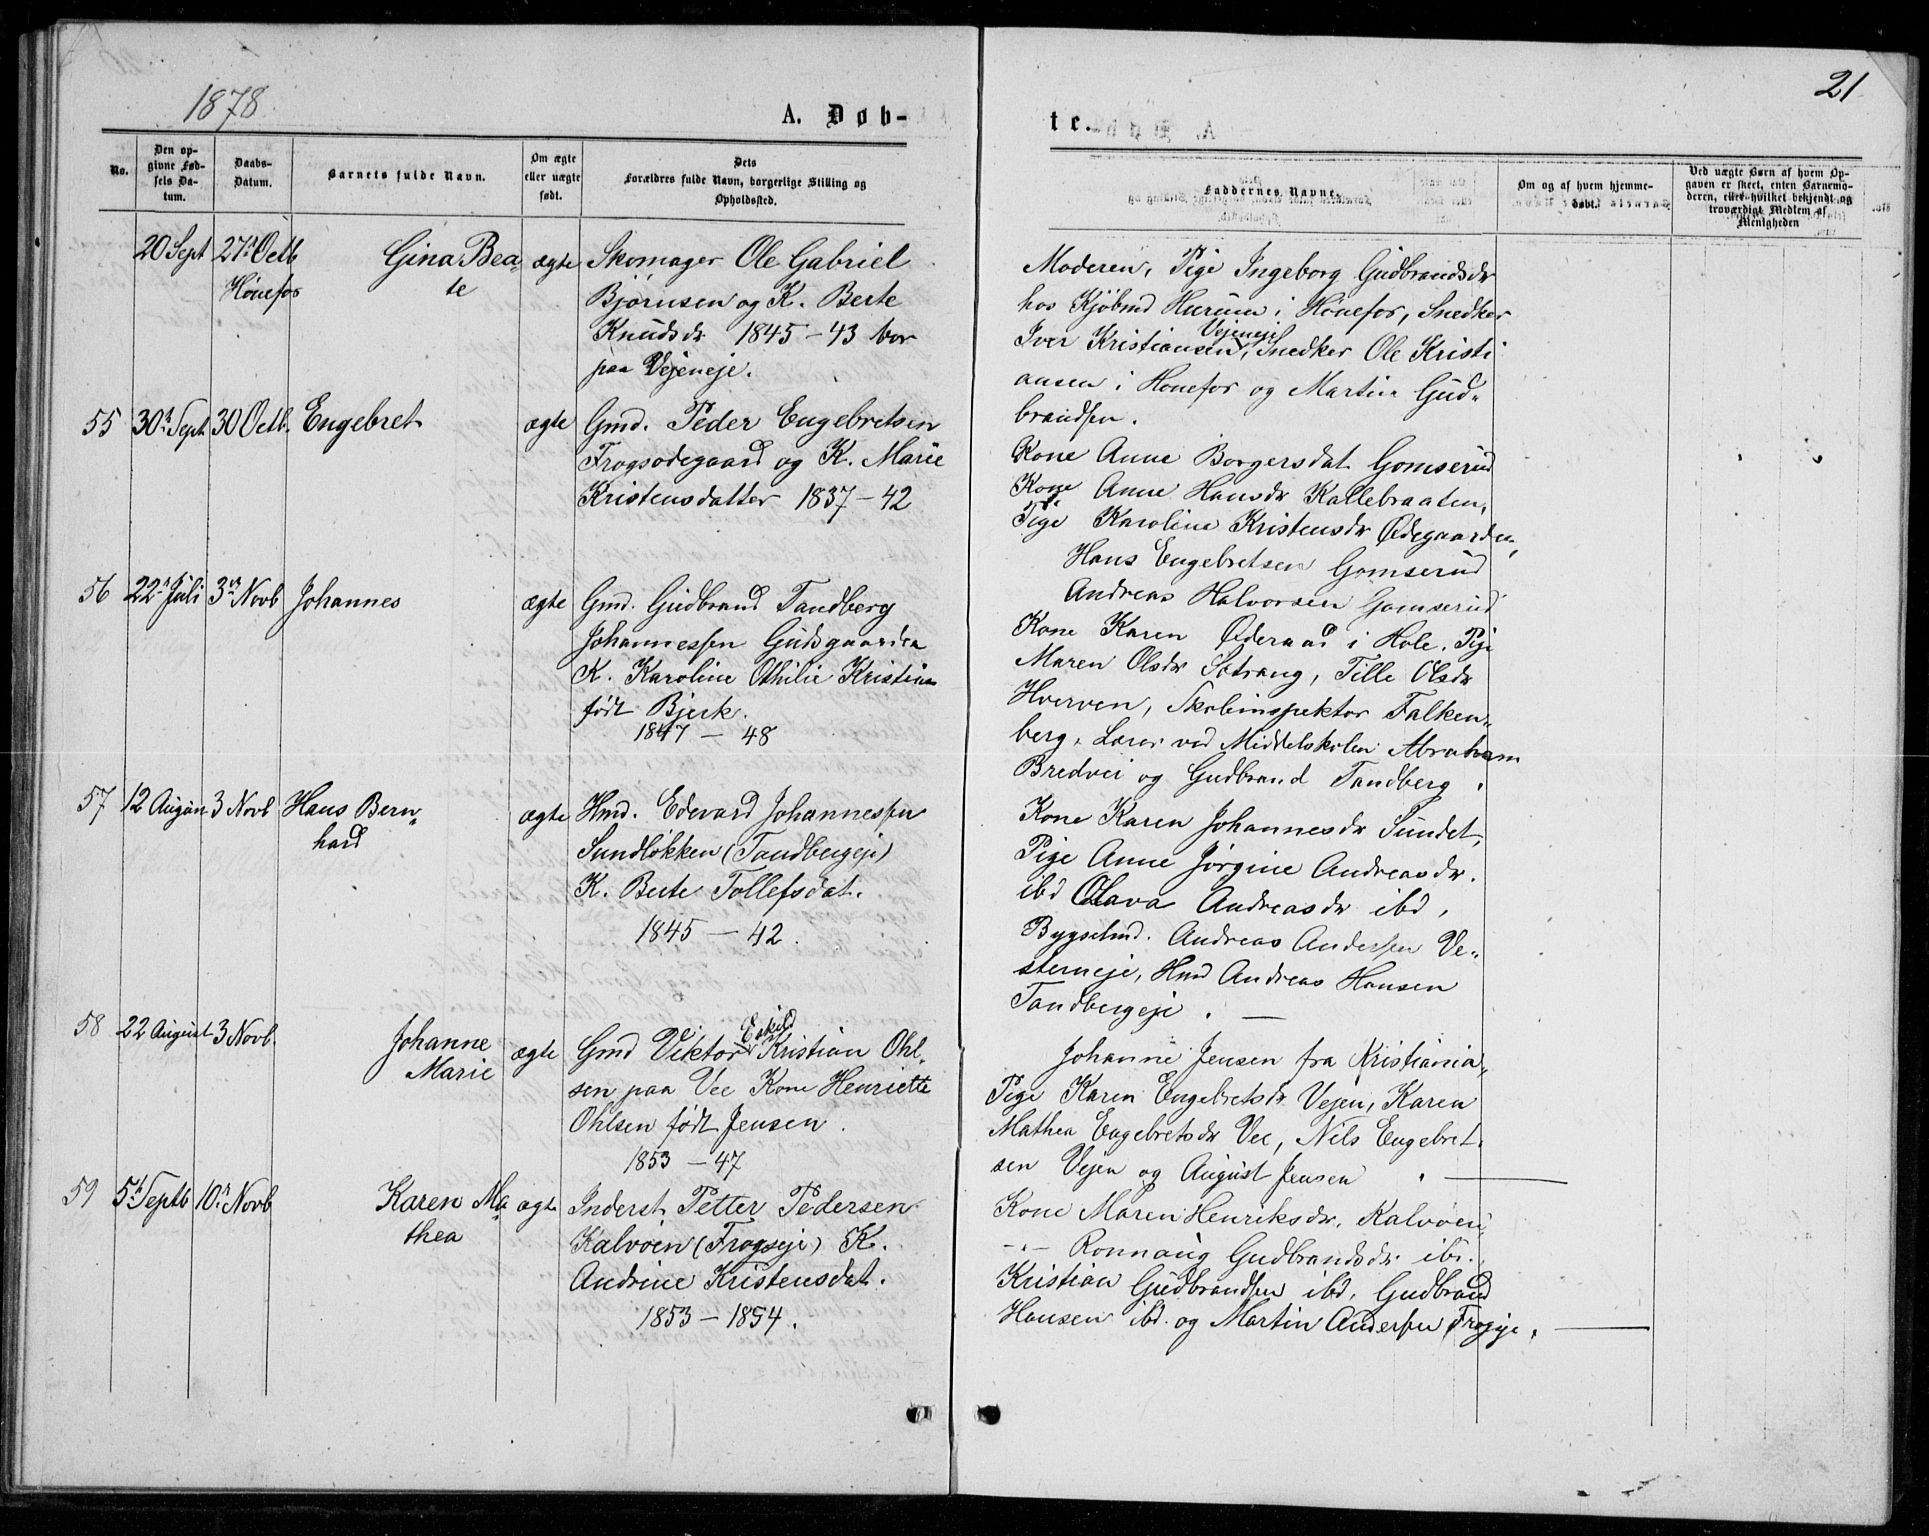 1878
A. Døb-
No.
Den op-
givne Fød-
sels Da-
tum.
Daabs-
Datum.
Barnets fulde Navn.
Om ægte
eller uægte
født.
Dets
Forældres fulde Navn, borgerlige Stilling og
Opholdssted.
20 Sept 27de Octb Gina Bea- ægte Skomager Ole Gabriel
Hönefos te Björnsen og K. Berte
Knudsdr 1845-43 bor
paa Vejeneje.
55 30te Sept 30 Octb. Engebret ægte Gmd. Peder Engebretsen
Frogsødegaard og K. Marie
Kristensdatter 1837-42
56 22de Juli 3die Novb Johannes ægte Gmd. Gudbrand Tandberg
Johannessen Gudsgaarden
K. Karoline Othilie Kristine
født Bjerk.
1847 - 48
57 12 August 3 Novb Hans Bern- ægte Hmd. Edevard Johannessen
hard Sundløkken (Tandbergeje)
K. Berte Tollefsdat.
1845 - 42.
58 22 August 3 Novb. Johanne ægte Gmd Viktor Eskild Kristian Ohl-
Marie sen paa Vee Kone Henriette
Ohlsen født Jensen.
1853 - 47
59 5te Septb 10de Novb Karen Ma- ægte Inderst Petter Pedersen
thea Kalvöen (Frogseje) K.
Andrine Kristensdat.
1853 - 1854.
21
te.
Faddernes Navne.
Om og af hvem hjemme-
døbt.
Ved uægte Børn af hvem Op-
gaven er skeet, enten Barnemo-
deren, eller hvilket bekjendt og
troværdigt Medlem af
Menigheden
Moderen, Pige Ingeborg Gudbrandsdr
hos Kjöbmd Hurum i Hönefos, Snedker
Iver Kristiansen Vejeneje, Snedker Ole Kristi
ansen i Honefos og Martin Gud-
brandsen.
Kone Anne Borgersdat Gomserud
Kone Anne Hansdr Kallebraaten,
Pige Karoline Kristensdr Ødegaarden,
Hans Engebretsen Gomserud
Andreas Halvorsen Gomserud
Kone Karen Øderaad i Hole. Pige
Maren Olsdr Sætrang, Tille Olsdr
Hverven, Skoleinspektor Falken-
berg, Lærer ved Middelskolen Abraham
Bredvei og Gudbrand Tandberg.
Kone Karen Johannesdr Sundet,
Pige Anne Jörgine Andreasdr.
ibd Olava Andreasdr ibd,
Bygselmd. Andreas Andersen Ve-
sterneje, Hmd Andreas Hansen
Tandbergeje.
Johanne Jensen fra Kristiania,
Pige Karen Engebretsdr Vejen, Karen
Mathea Engebretsdr Vee, Nils Engebret-
sen Vejen og August Jensen.
Kone Maren Henriksdr. Kalvöen,
-"- Ronnaug Gudbrandsdr ibd.
Kristian Gudbrandsen ibd, Gudbrand
Hansen ibd. og Martin Andersen Frogeje.